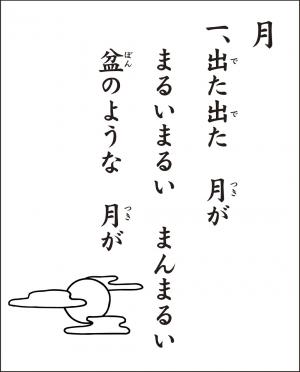 月
一、出た出た　月が
まるいまるい　まんまるい
盆のような　月が